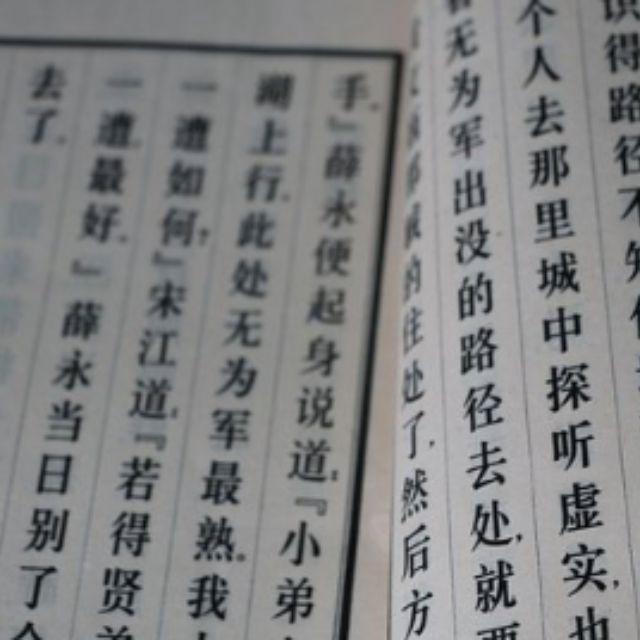 识得路径不
个人去那里城中探听虚实,也
无为军出没的路径去处,就要
的住处了,然后方
手。』薛永便起身说道:『小弟
湖上行。此处无为军最熟。我
一遭如何?』宋江道:『若得贤弟
一遭,最好。』薛永当日别了
去了。